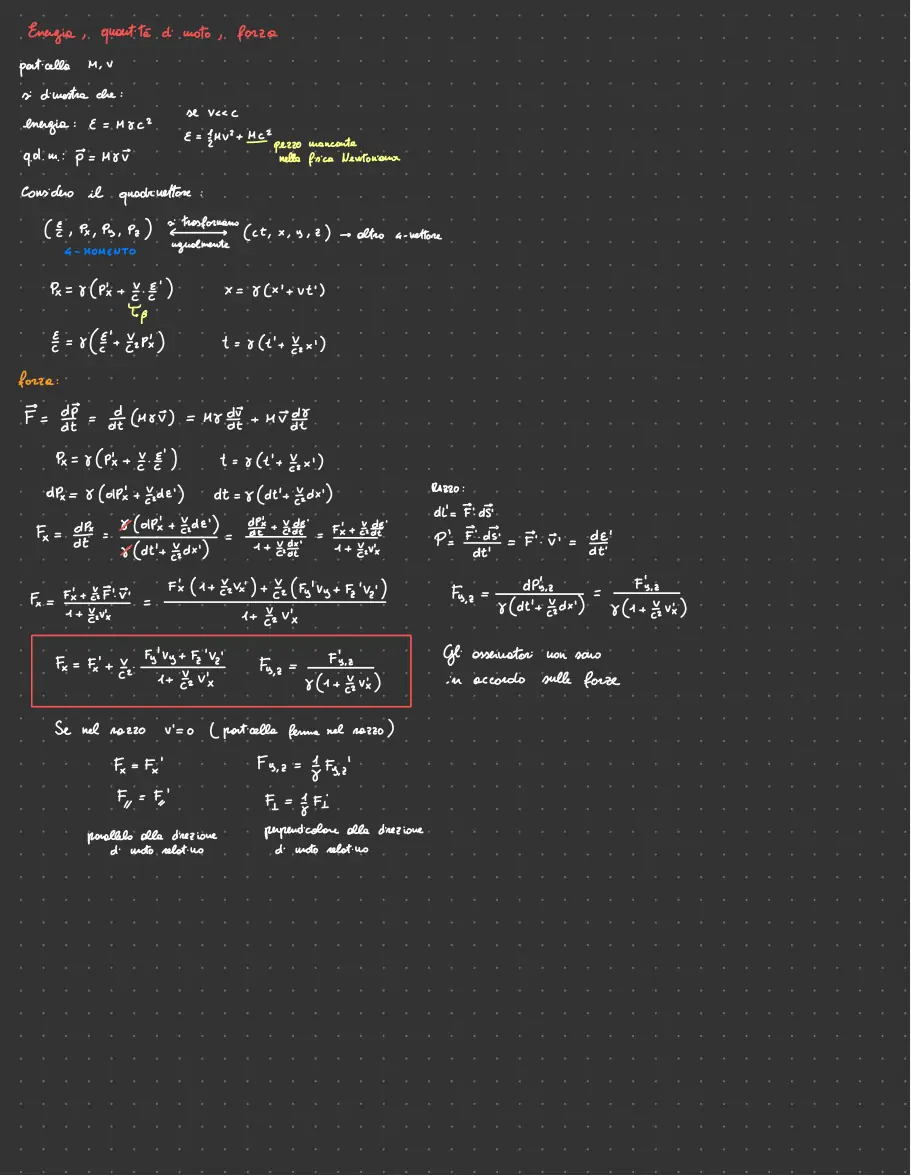 Energia, quantità di moto, forza
particella M, v
si dimostra che:
energia: ε = Mγc²
q.d.m.: p⃗ = Mγv⃗
se v<<c
ε = ½Mv² + Mc²
pezzo mancante
nella fisica Newtoniana
Considero il quadrivettore:
(ε/c, Px, Py, Pz) si trasformano ugualmente ⟷ (ct, x, y, z) → altro 4-vettore
4-MOMENTO
Px = γ(P'x + v/c · ε'/c) x = γ(x' + vt')
β
ε/c = γ(ε'/c + v/c² P'x) t = γ(t' + v/c² x')
forza:
F⃗ = dp⃗/dt = d/dt (Mγv⃗) = Mγ dv⃗/dt + Mv⃗ dγ/dt
Px = γ(P'x + v/c · ε'/c) t = γ(t' + v/c² x')
dPx = γ(dP'x + v/c² dε') dt = γ(dt' + v/c² dx')
Fx = dPx/dt = γ(dP'x + v/c² dε') / γ(dt' + v/c² dx') = (dP'x/dt + v/c² dε'/dt) / (1 + v/c² dx'/dt) = (F'x + v/c² dε'/dt) / (1 + v/c² v'x)
Fx = (F'x + v/c² F⃗'·v⃗') / (1 + v/c² v'x) = (F'x (1 + v/c² vx') + v/c² (Fy'vy + Fz'vz')) / (1 + v/c² v'x)
Fx = Fx' + v/c² · (Fy'vy + Fz'vz') / (1 + v/c² v'x) Fy,z = F'y,z / γ(1 + v/c² v'x)
RAZZO:
dL' = F⃗'·ds⃗'
P' = F⃗'·ds⃗'/dt' = F⃗'·v⃗' = dε'/dt'
Fy,z = dP'y,z / γ(dt' + v/c² dx') = F'y,z / γ(1 + v/c² v'x)
Gli osservatori non sono
in accordo sulle forze
Se nel razzo v'=0 (particella ferma nel razzo)
Fx = Fx' Fy,z = 1/γ Fy,z'
F// = F//' F⊥ = 1/γ F⊥'
parallelo alla direzione
di moto relativo
perpendicolare alla direzione
di moto relativo